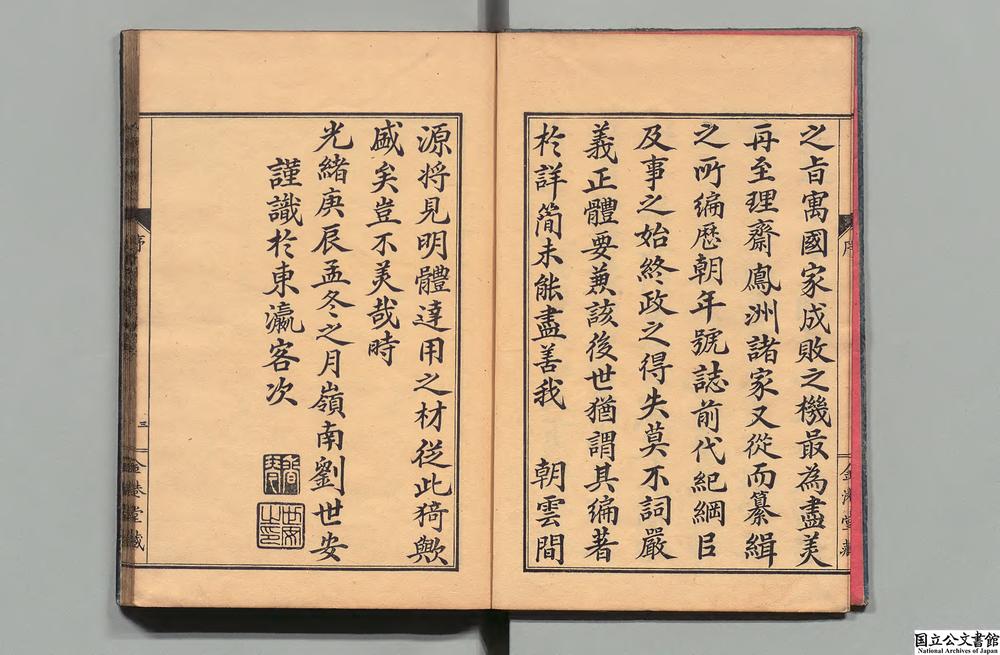 之旨寓國家成敗之機最為盡美
再至理齋鳳洲諸家又從而纂緝
之所編歷朝年號誌前代紀綱臣
及事之始終政之得失莫不詞嚴
義正體要兼該後世猶謂其編著
於詳簡未能盡善我 朝雲間
源將見明體達用之材從此猗歟
盛矣豈不美哉時
光緒庚辰孟冬之月嶺南劉世安
謹識於東瀛客次
世安之印
序
三
国立公文書館
National Archives of Japan